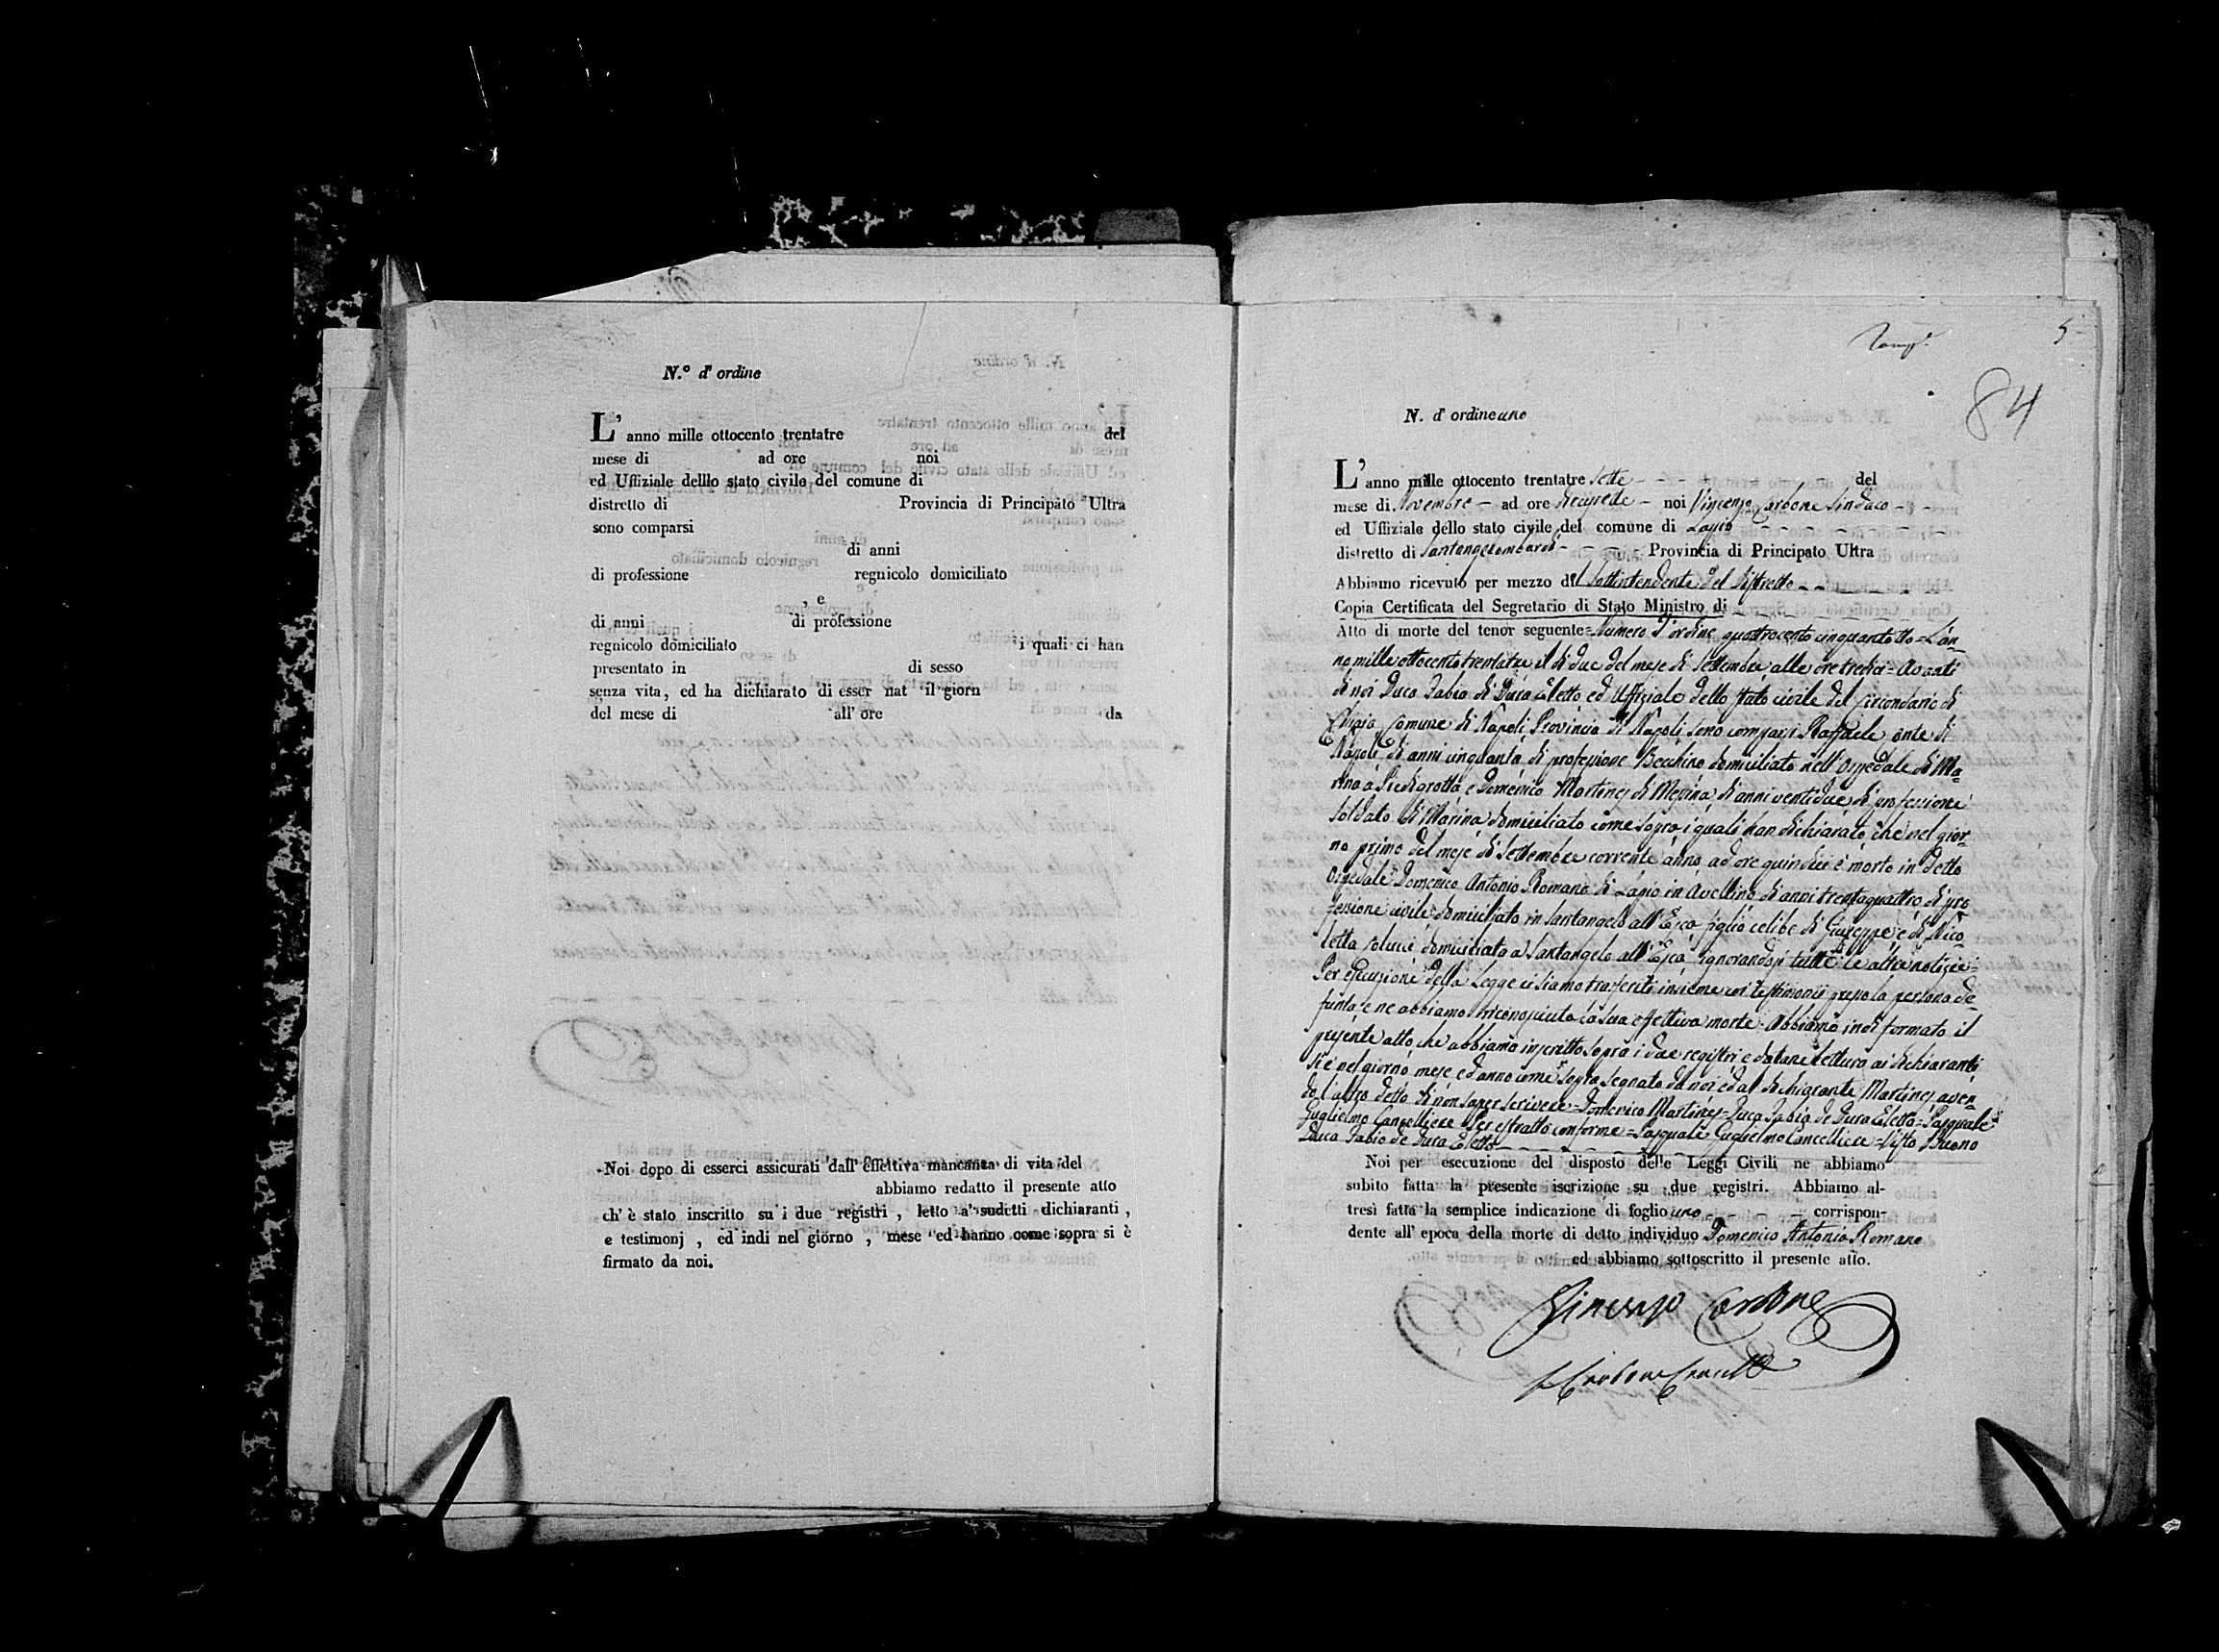 N.º d' ordine
L' anno mille ottocento trentatre del
mese di ad ore noi
ed Uffiziale delllo stato civile del comune di
distretto di Provincia di Principato Ultra
sono comparsi
di anni
di professione regnicolo domiciliato
, e
di anni di professione
regnicolo domiciliato i quali ci han
presentato in di sesso
senza vita, ed ha dichiarato di esser nat il giorn
del mese di all' ore da
Noi dopo di esserci assicurati dall' effettiva mancanza di vita del
abbiamo redatto il presente atto
ch' è stato inscritto su i due registri , letto a' sudetti dichiaranti ,
e testimonj , ed indi nel giorno , mese ed hanno come sopra si è
firmato da noi.
5
84
N. d' ordine uno
L' anno mille ottocento trentatre sette del
mese di Novembre ad ore noi Vincenzo Carbone Sindaco
ed Uffiziale dello stato civile del comune di Lapio
distretto di Santangelombardi Provincia di Principato Ultra
Abbiamo ricevuto per mezzo del Sottintendente del Distretto
Copia Certificata del Segretario di Stato Ministro di
Atto di morte del tenor seguente = Numero d'ordine quattrocento cinquantotto = L'an-
no mille ottocento trentatre il di due del mese di Settembre alle ore tredici = Avanti
di noi Duca Fabio di Dura Eletto ed Uffiziale dello stato civile del Circondario di
Chiaja Comune di Napoli Provincia di Napoli sono comparsi Raffaele onte di
Napoli di anni cinquanta di professione Becchino domiciliato nell' Ospedale di Ma-
rina a Piedigrotta e Domenico Martines di Messina di anni ventidue di professione
soldato di Marina domiciliato come sopra i quali han dichiarato che nel gior-
no primo del mese di Settembre corrente anno ad ore quindici è morto in detto
Ospedale Domenico Antonio Romano di Lapio in Avellino di anni trentaquattro di pro
fessione civile domiciliato in Santangelo all' Esca figlio celibe di Giuseppe e di Nico-
letta domiciliato a Santangelo all' Esca ignorandosi tutte le altre notizie =
Per esecuzione della Legge ci siamo trasferiti insieme coi testimonii presso la persona de-
funta e ne abbiamo riconosciuta la sua effettiva morte. Abbiamo indi formato il
presente atto che abbiamo inscritto sopra i due registri e datane lettura ai dichiaranti
si è nel giorno mese ed anno come sopra segnato da noi ed al dichiarante Martines aven-
do l'altro detto di non saper scrivere = Domenico Martines = Duca Fabio de Dura Eletto = Pasquale
Guglielmo Cancelliere = Per estratto conforme = Pasquale Guglielmo Cancelliere = Visto Buono
Duca Fabio de Dura Eletto
Noi per esecuzione del disposto delle Leggi Civili ne abbiamo
subito fatta la presente iscrizione su due registri. Abbiamo al-
tresì fatta la semplice indicazione di foglio uno corrispon-
dente all' epoca della morte di detto individuo Domenico Antonio Romano
ed abbiamo sottoscritto il presente atto.
Vincenzo Carbone